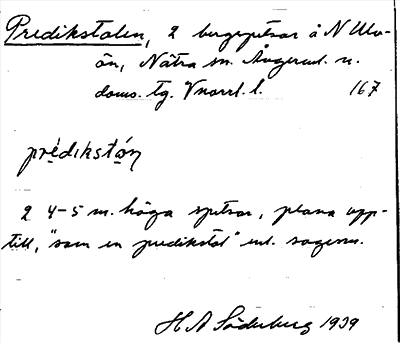 Predikstolen, 2 bergspetsar å N Ulv-
ön, Nätra sn. Ångerml. n.
doms. tg. Vnorrl. l. 167
prédikstą́n
2 4-5 m. höga spetsar, plana upp-
till, "som en predikstol" enl. sagesm.
H A Söderberg 1939